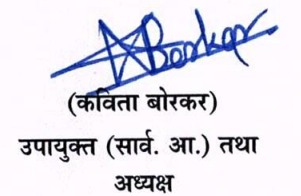 Borkar
(कविता बोरकर)
उपायुक्त (सार्व. आ.) तथा
अध्यक्ष